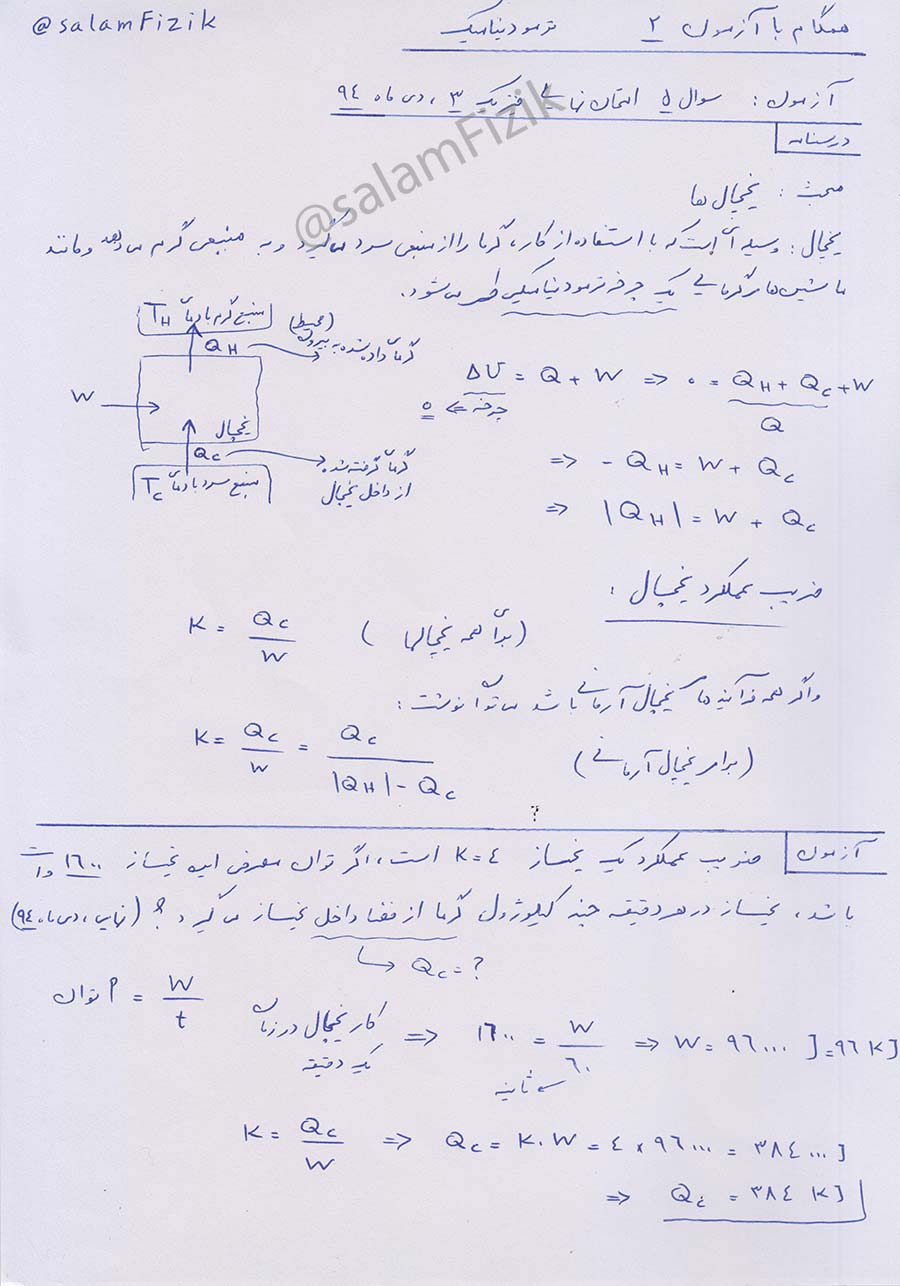 @salamFizik
همگام با آزمون ۲ ترمودینامیک
آزمون : سوال ۵ امتحان نهایی فیزیک ۳ ، دی ماه ۹۴
@salamFizik
درسنامه
مبحث : یخچال ها
یخچال : وسیله ای است که با استفاده از کار، گرما را از منبعی سرد می گیرد و به منبعی گرم می دهد و مانند
ماشین های گرمایی یک چرخه ترمودینامیکی طی می شود.
منبع گرم با دمای T_H
Q_H
گرمای داده شده به بیرون (محیط)
W
یخچال
Q_c
گرمای گرفته شده
از داخل یخچال
منبع سرد با دمای T_c
ΔU = Q + W ⇒ ۰ = Q_H + Q_c + W
چرخه ⇒ ۰
Q
⇒ - Q_H = W + Q_c
⇒ |Q_H| = W + Q_c
ضریب عملکرد یخچال :
K = Q_c / W (برای همه یخچالها)
و اگر همه فرآیند های یخچال آرمانی باشد می توان نوشت :
K = Q_c / W = Q_c / |Q_H| - Q_c (برای یخچال آرمانی)
?
آزمون
ضریب عملکرد یک یخساز K = ٤ است، اگر توان مصرفی این یخساز ۱٦۰۰ وات
باشد، یخساز در هر دقیقه چند کیلوژول گرما از فضا داخل یخساز می گیرد ؟ (نهایی، دی ماه ۹٤)
Q_c = ?
توان P = W / t
کار یخچال در زمان
یک دقیقه
⇒ ۱٦۰۰ = W / ٦۰ ⇒ W = ۹٦۰۰۰ J = ۹٦ KJ
ثانیه
K = Q_c / W ⇒ Q_c = K . W = ٤ × ۹٦۰۰۰ = ۳۸٤۰۰۰ J
⇒ Q_c = ۳۸٤ KJ